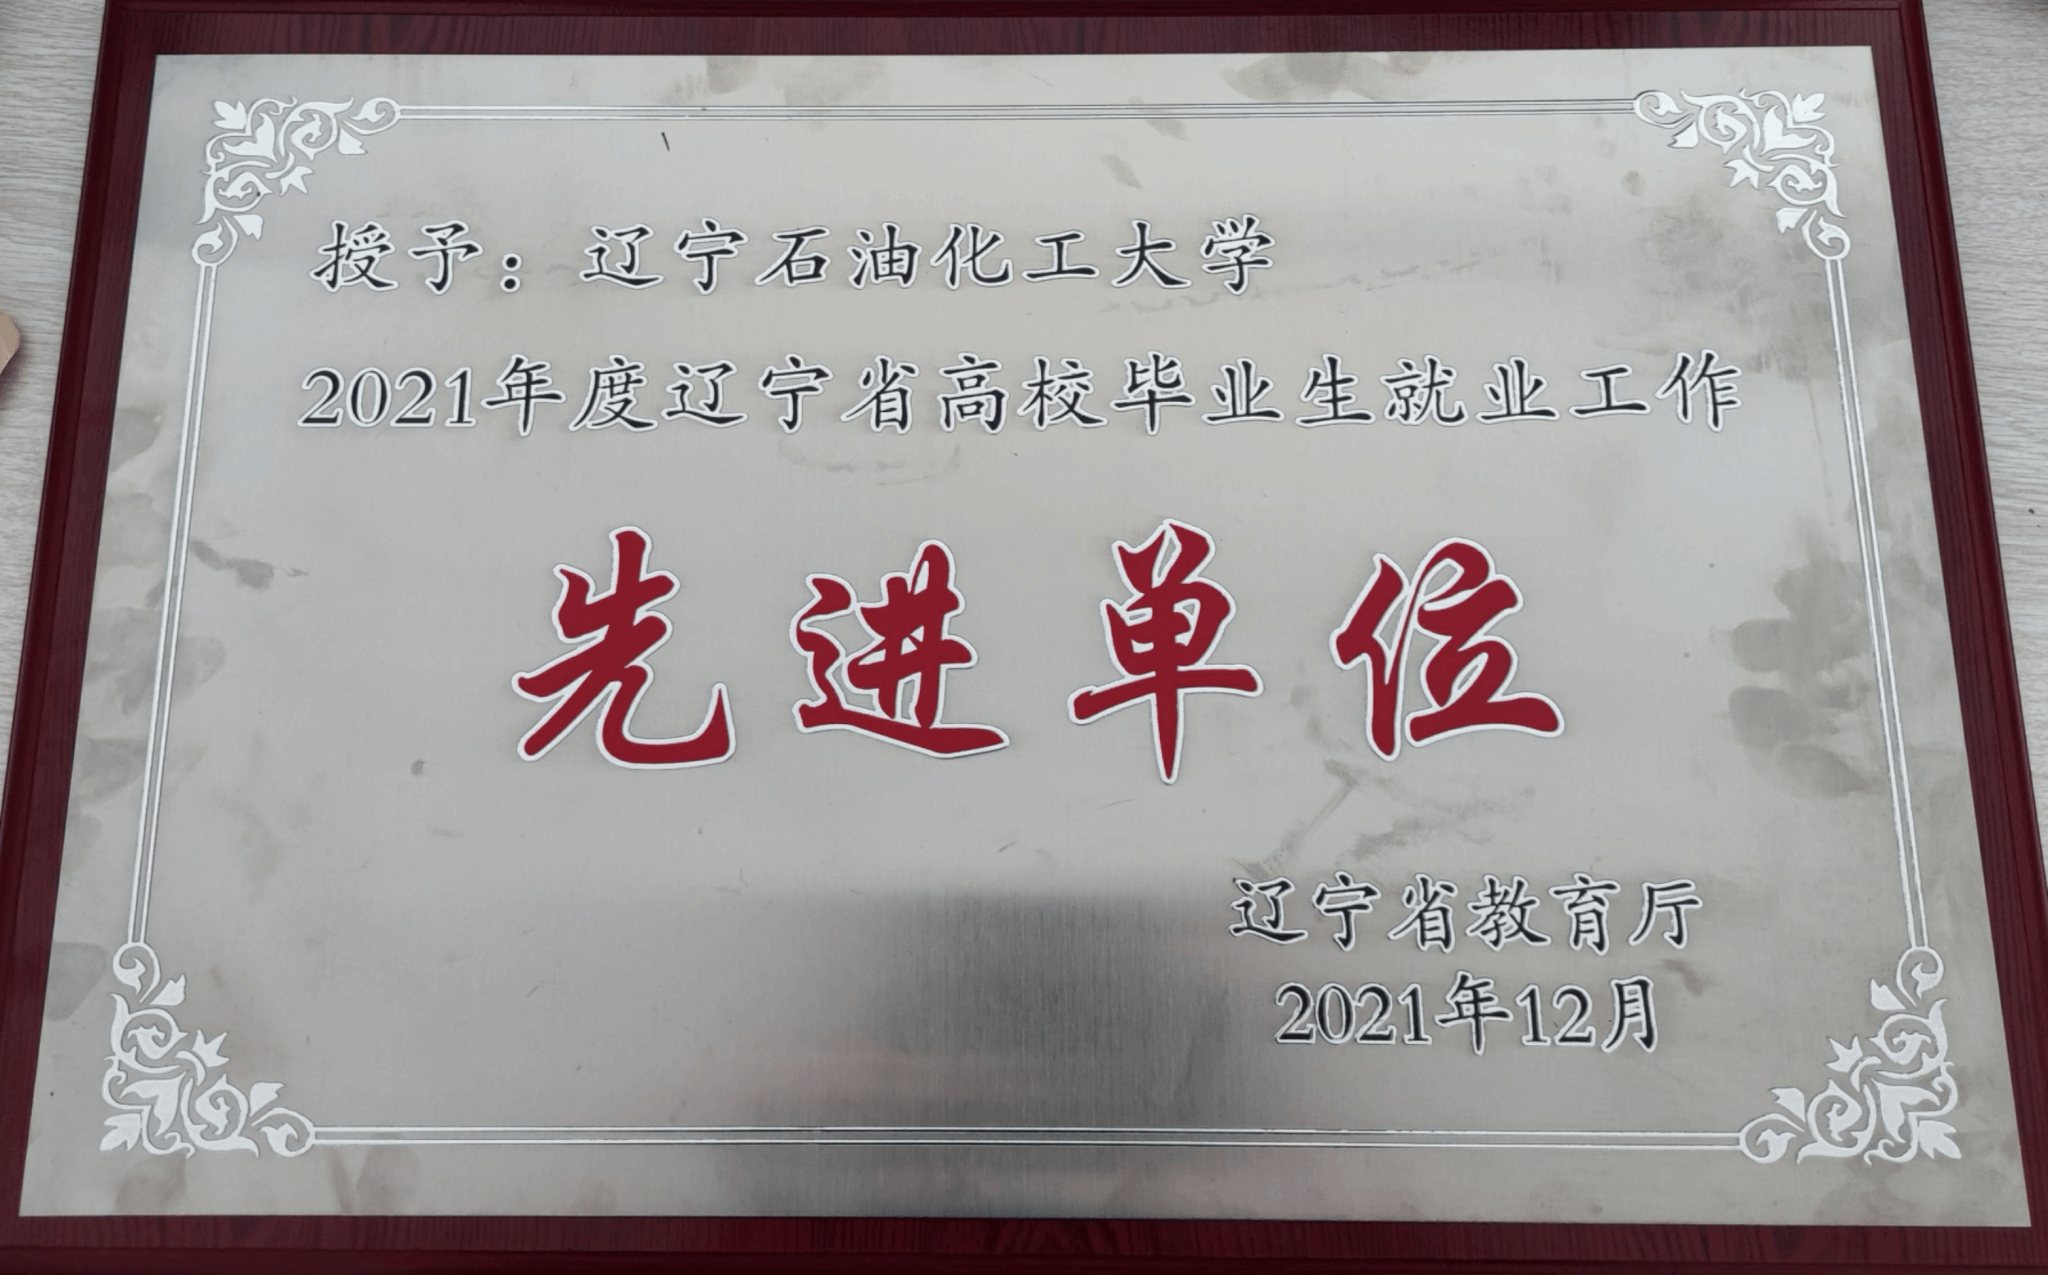 授予：辽宁石油化工大学
2021年度辽宁省高校毕业生就业工作
先进单位
辽宁省教育厅
2021年12月